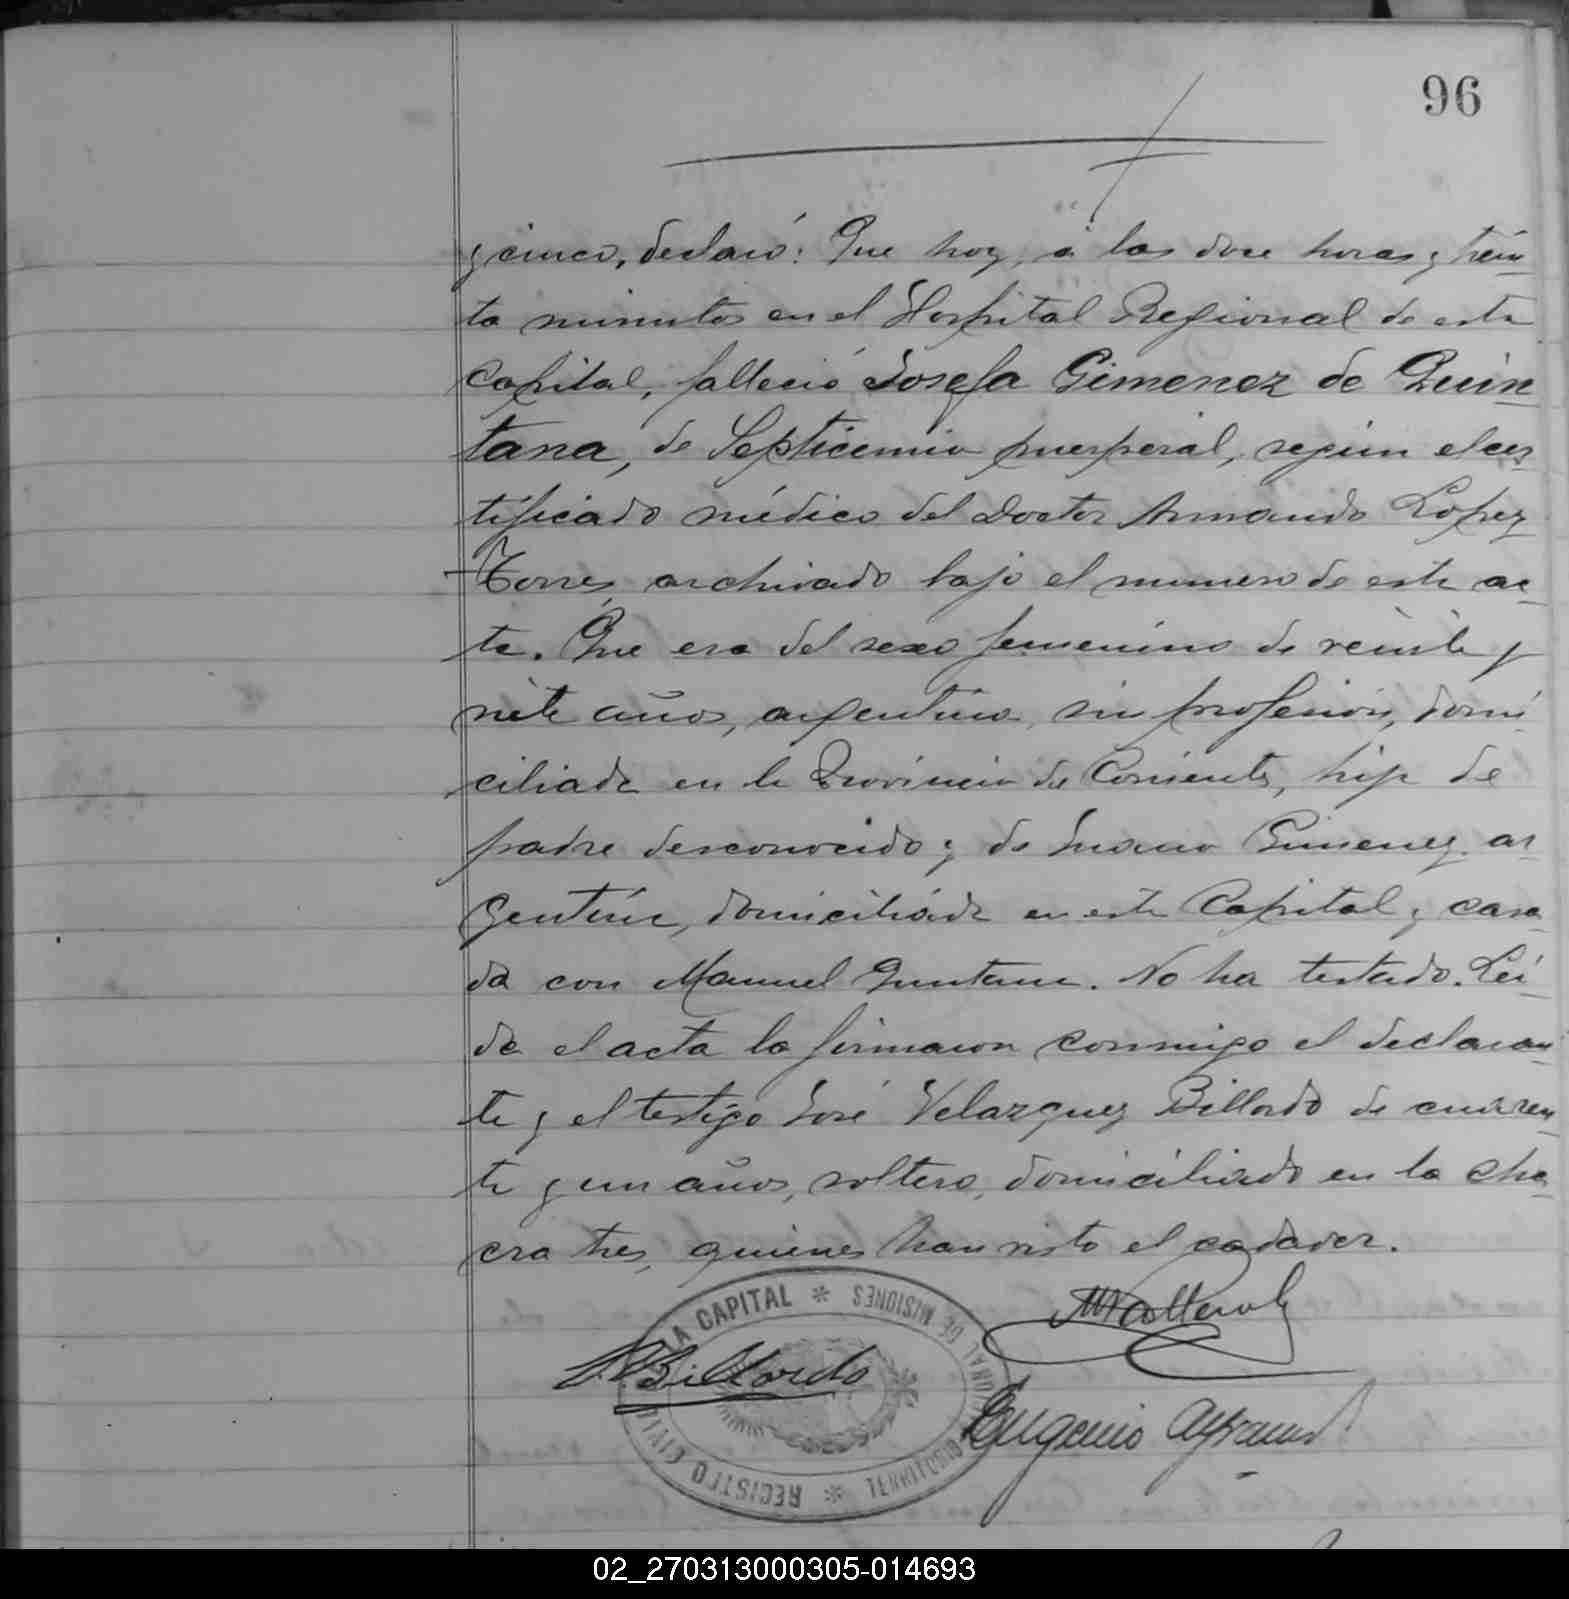 96
y cinco, declaró: Que hoy, á las doce horas y trein
ta minutos en el Hospital Regional de esta
Capital, falleció Josefa Gimenez de Quin
tana, de Septicemia puerperal, según el cer
tificado médico del Doctor Armando Lopez
Torres, archivado bajo el numero de este ac
ta. Que era del sexo femenino de veinte y
siete años, argentina, sin profesión, domi
ciliada en la Provincia de Corrientes, hija de
padre desconocido y de Gimenez, ar
gentina, domiciliada en esta Capital y casa
da con Manuel Quintana. No ha testado. Leí
da el acta la firmaron conmigo el declaran
te y el testigo José Velazquez Billordo de cuaren
ta y un años, soltero, domiciliado en la cha
cra tres, quienes han visto el cadaver.
REGISTRO CIVIL LA CAPITAL * TERRITORIO NACIONAL DE MISIONES *
Billordo
Eugenio
02_270313000305-014693